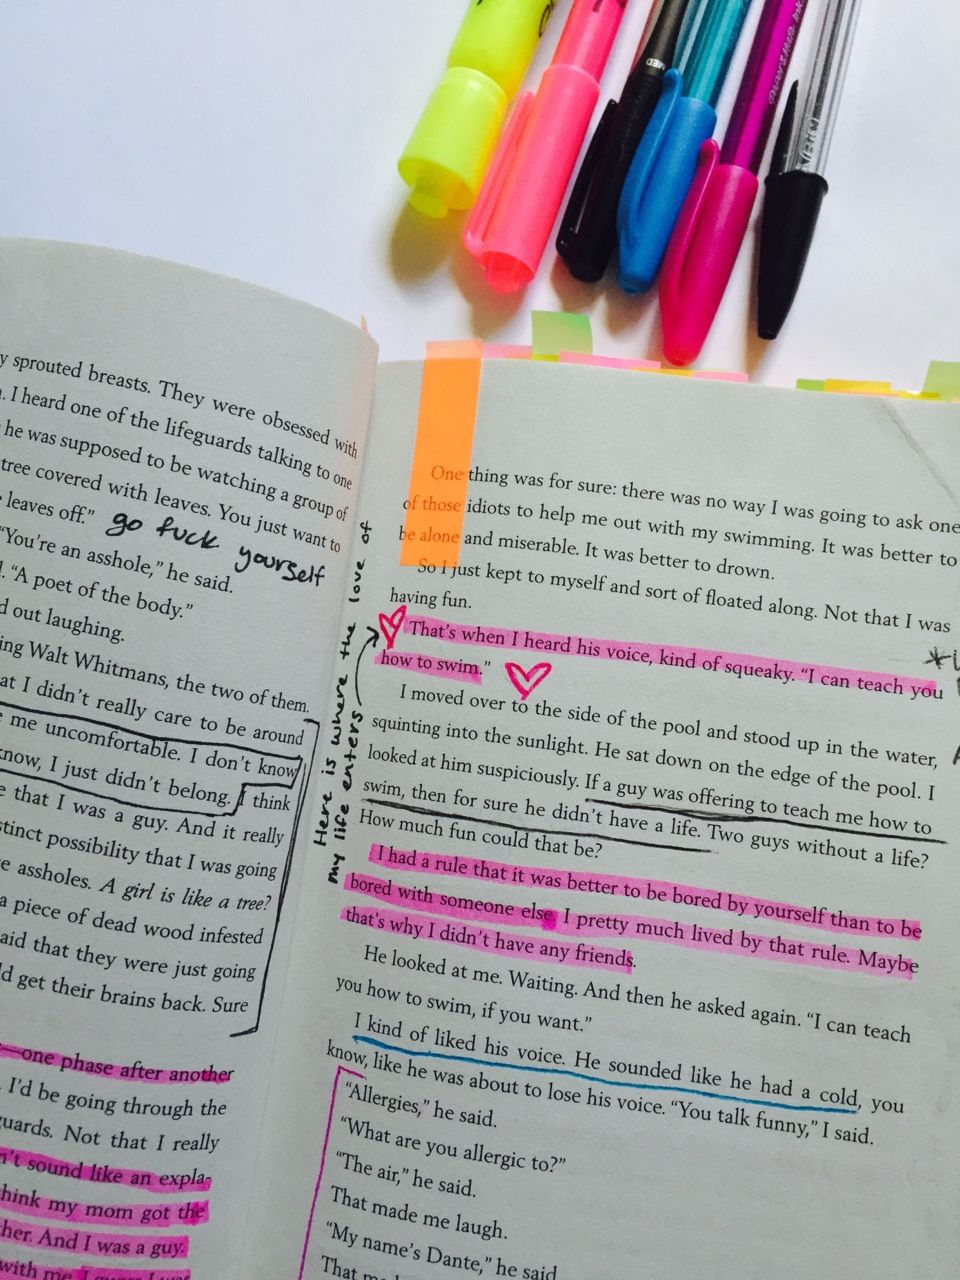 y sprouted breasts. They were obsessed with
. I heard one of the lifeguards talking to one
he was supposed to be watching a group of
tree covered with leaves. You just want to
leaves off."
go fuck yourself
"You're an asshole," he said.
"A poet of the body."
out laughing.
ing Walt Whitmans, the two of them.
at I didn't really care to be around
me uncomfortable. I don't know
know, I just didn't belong. I think
that I was a guy. And it really
stinct possibility that I was going
assholes. A girl is like a tree?
a piece of dead wood infested
aid that they were just going
get their brains back. Sure
—one phase after another
I'd be going through the
guards. Not that I really
n't sound like an expla-
hink my mom got the
her. And I was a guy.
with me.
Here is where the love of
my life enters
One thing was for sure: there was no way I was going to ask one
of those idiots to help me out with my swimming. It was better to
be alone and miserable. It was better to drown.
So I just kept to myself and sort of floated along. Not that I was
having fun.
That's when I heard his voice, kind of squeaky. "I can teach you
how to swim."
I moved over to the side of the pool and stood up in the water,
squinting into the sunlight. He sat down on the edge of the pool. I
looked at him suspiciously. If a guy was offering to teach me how to
swim, then for sure he didn't have a life. Two guys without a life?
How much fun could that be?
I had a rule that it was better to be bored by yourself than to be
bored with someone else. I pretty much lived by that rule. Maybe
that's why I didn't have any friends.
He looked at me. Waiting. And then he asked again. "I can teach
you how to swim, if you want."
I kind of liked his voice. He sounded like he had a cold, you
know, like he was about to lose his voice. "You talk funny," I said.
"Allergies," he said.
"What are you allergic to?"
"The air," he said.
That made me laugh.
"My name's Dante," he said
That